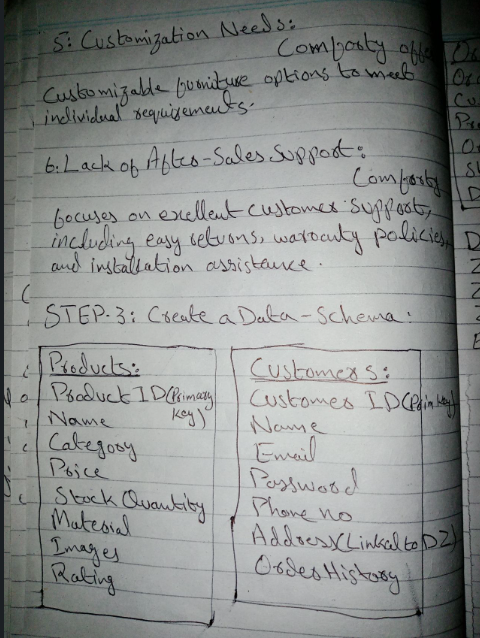 5: Customization Needs:
Comforty offe
Customizable furniture options to meet
individual requirements.
6: Lack of After-Sales Support:
Comforty
focuses on excellent customer support,
including easy returns, warranty policies,
and installation assistance.
STEP-3: Create a Data-Schema:
Products:
Product ID (Primary
Key)
Name
Category
Price
Stock Quantity
Material
Images
Rating
Customers:
Customer ID (Prim key)
Name
Email
Password
Phone no
Address (Linked to DZ)
Order History